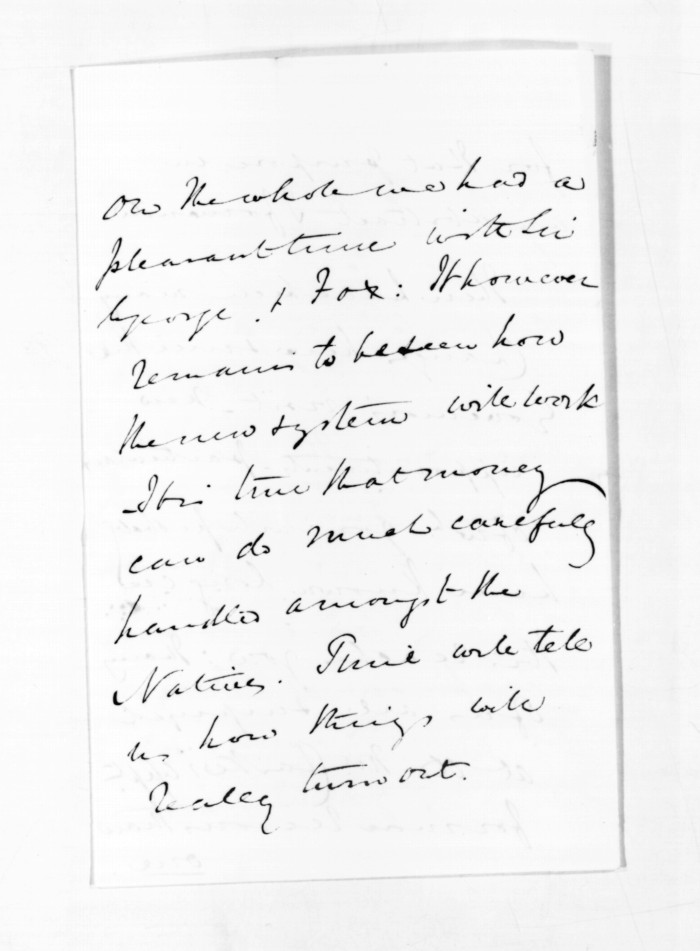 On the whole we had a
pleasant time with Sir
George & Fox: It however
remains to be seen how
the new system will work
It is true that money
can do much carefully
handled amongst the
Natives. Time will tell
us how things will
really turn out.